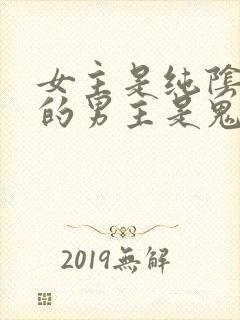 女主是纯陰
的男主是鬼
2019無解